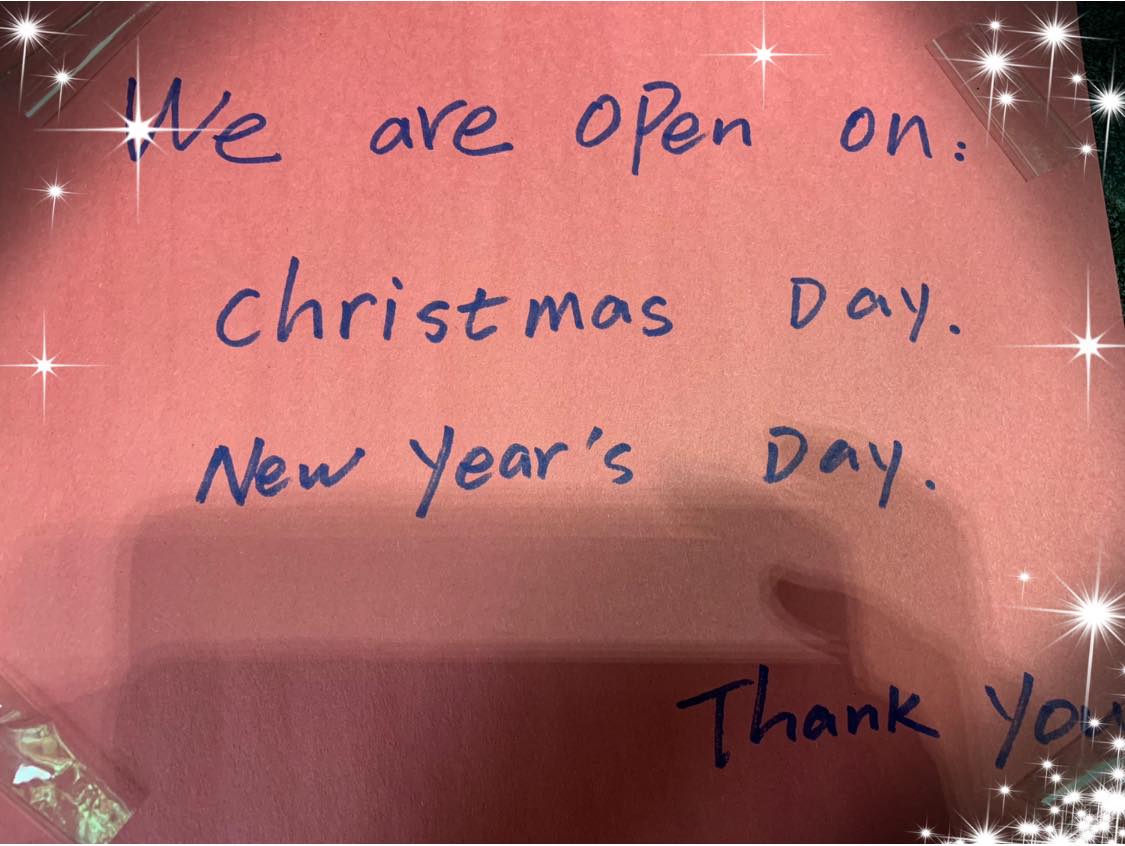 We are open on:
Christmas Day.
New Year's Day.
Thank You